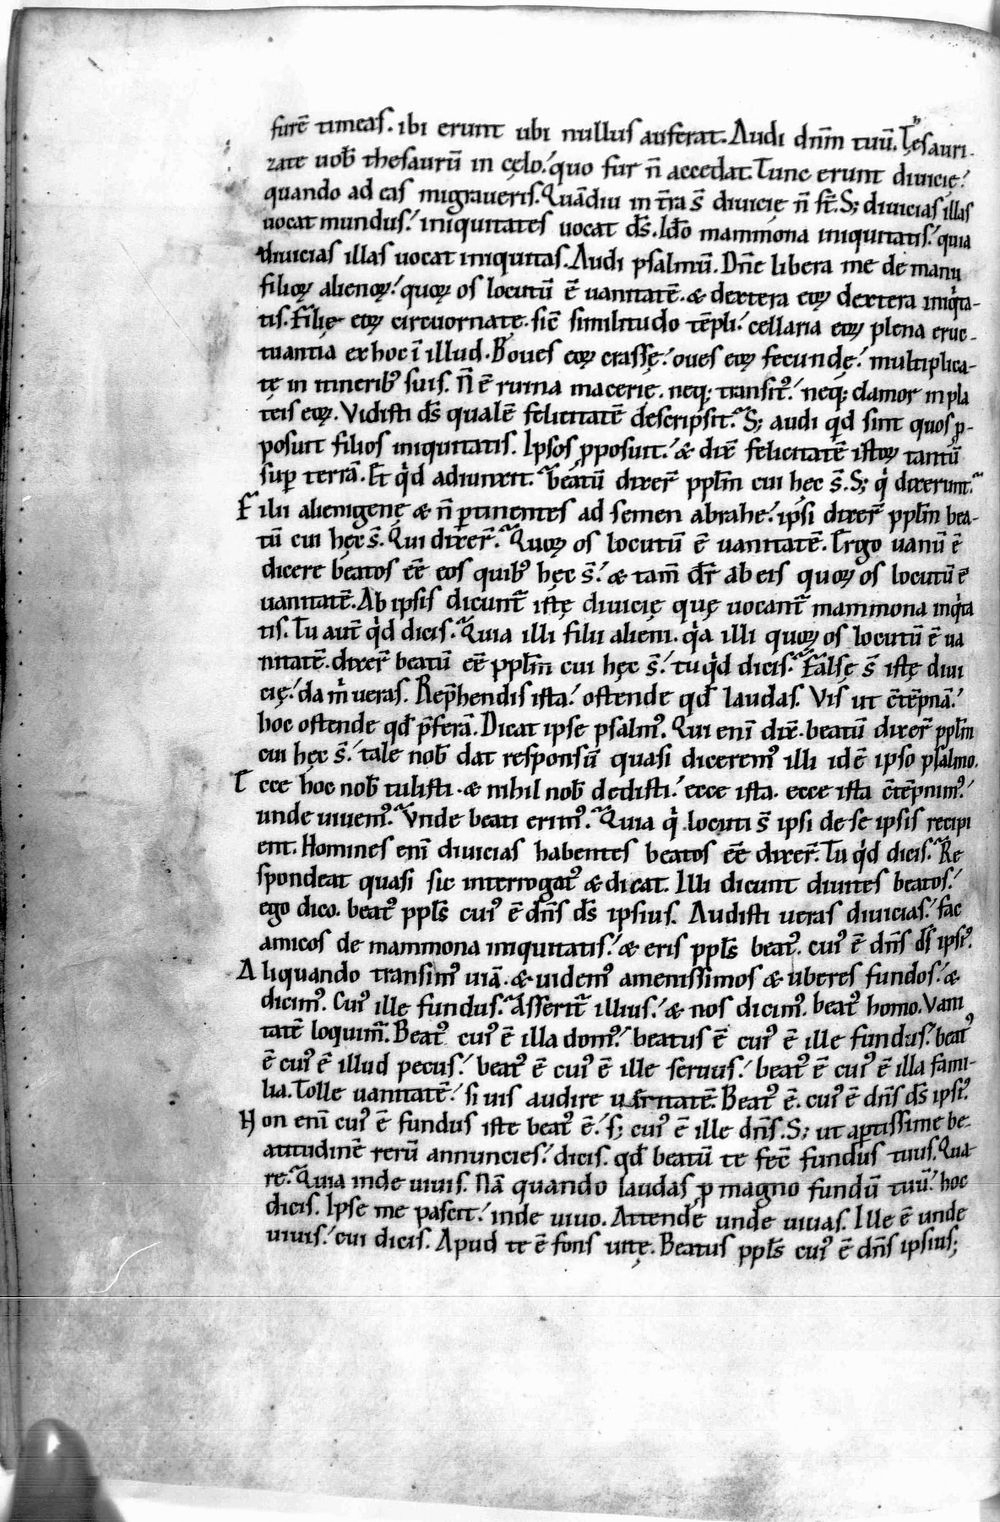 furē timeas. ibi erunt ubi nullus auferat. Audi dn̄m tuū. Tęsauri-
zate uob̄ thesaurū in cęlo. quo fur n̄ accedat. Tunc erunt diuicię.
quando ad eas migraueris. Quādiu in t̄ra s̄ diuicię n̄ st̄. S; diuicias illas
uocat mundus. iniquitates uocat d̄s. Id̄o mammona iniquitatis. quia
diuicias illas uocat iniquitas. Audi psalmū. Dn̄e libera me de manu
filioꝝ alienoꝝ. quoꝝ os locutū ē uanitatē. & dextera eoꝝ dextera iniqͥta-
tis. Filię eoꝝ circūornatę. sic̄ similitudo tēpli. cellaria eoꝝ plena eruc-
tuantia ex hoc ī illud. Boues eoꝝ crassę. oues eoꝝ fecundę. multiplica-
tę in itinerib; suis. N̄ ē ruina macerię. neq; transitꝰ. neq; clamor in pla
teis eoꝝ. Vidisti d̄s qualē felicitatē descripsit. S; audi qd̄ sint quos ꝓ-
posuit filios iniquitatis. Ipsos ꝓposuit. & dix̄ felicitatē istoꝝ tantū
suꝑ terrā. Et qͥd adiunxit. beatū dixer̄ ppl̄m cui hęc s̄. S; qͥ dixerunt.
Filii alienigenę & n̄ ꝑtinentes ad semen abrahę. ipsi dixer̄ ppl̄m bea-
tū cui hęc s̄. Qui dixer̄. Quoꝝ os locutū ē uanitatē. Ergo uanū ē
dicere beatos ēē eos quib; hęc s̄. & tam̄ dr̄ ab eis quoꝝ os locutū ē
uanitatē. Ab ipsis dicunt̄ istę diuicię quę uocant̄ mammona iniqͥta
tis. Tu aut̄ qͥd dicis. Quia illi filii alieni. qͥa illi quoꝝ os locutū ē ua
nitatē. dixer̄ beatū ēē ppl̄m cui hęc s̄. tu qͥd dicis. Falsę s̄ istę diui
cię. da m̄ ueras. Rep̄hendis ista. ostende qd̄ laudas. Vis ut c̄tēpnā.
hoc ostende qd̄ p̄ferā. Dicat ipse psalmꝰ. Qui enī dix̄. beatū dixer̄ ppl̄m
cui hęc s̄. tale nob̄ dat responsū quasi diceremꝰ illi idē ipso psalmo.
Ecce hoc nob̄ tulisti. & nihil nob̄ dedisti. ecce ista. ecce ista c̄tēpnimꝰ.
unde uiuemꝰ. Vnde beati erimꝰ. Quia qͥ locuti s̄ ipsi de se ipsis recipi
ent. Homines enī diuicias habentes beatos ēē dixer̄. Tu qͥd dicis. Re
spondeat quasi sic interrogatꝰ & dicat. Illi dicunt diuites beatos.
ego dico. beatꝰ ppl̄s cuiꝰ ē dn̄s d̄s ipsius. Audisti ueras diuicias. fac
amicos de mammona iniquitatis. & eris ppl̄s beatꝰ. cuiꝰ ē dn̄s d̄s ipsiꝰ.
Aliquando transimꝰ uiā. & uidemꝰ amenissimos & uberes fundos. &
dicimꝰ. Cuiꝰ ille fundus. Asserit̄ illius. & nos dicimꝰ. beatꝰ homo. Vani
tatē loquim̄. Beatꝰ cuiꝰ ē illa domꝰ. beatus ē cuiꝰ ē ille fundus. beatꝰ
ē cuiꝰ ē illud pecus. beatꝰ ē cuiꝰ ē ille seruus. beatꝰ ē cuiꝰ ē illa fami-
lia. Tolle uanitatē. si uis audire ueritatē. Beatꝰ ē. cuiꝰ ē dn̄s d̄s ipsiꝰ.
Non enī cuiꝰ ē fundus iste beatꝰ ē. s; cuiꝰ ē ille dn̄s. S; ut aꝑtissime be-
atitudinē rerū annuncies. dicis. qd̄ beatū te fec̄ fundus tuus. Qua
re. Quia inde uiuis. Nā quando laudas ꝓ magno fundū tuū. hoc
dicis. Ipse me pascit. inde uiuo. Attende unde uiuas. Ille ē unde
uiuis. cui dicis. Apud te ē fons uitę. Beatus ppl̄s cuiꝰ ē dn̄s ipsius;